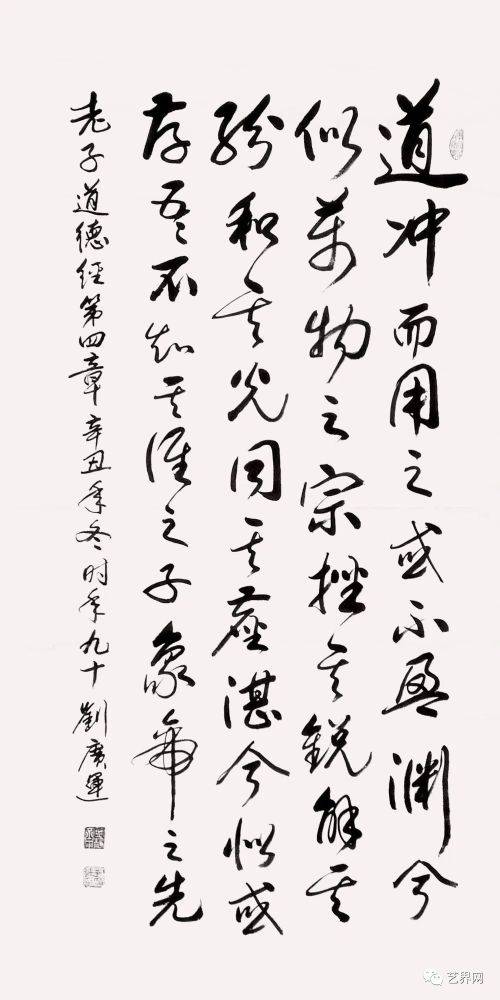 道冲而用之或不盈渊兮
似万物之宗挫其銳解其
紛和其光同其塵湛兮似或
存吾不知其谁之子象帝之先
老子道德经第四章辛丑年冬时年九十劉廣運
艺界网